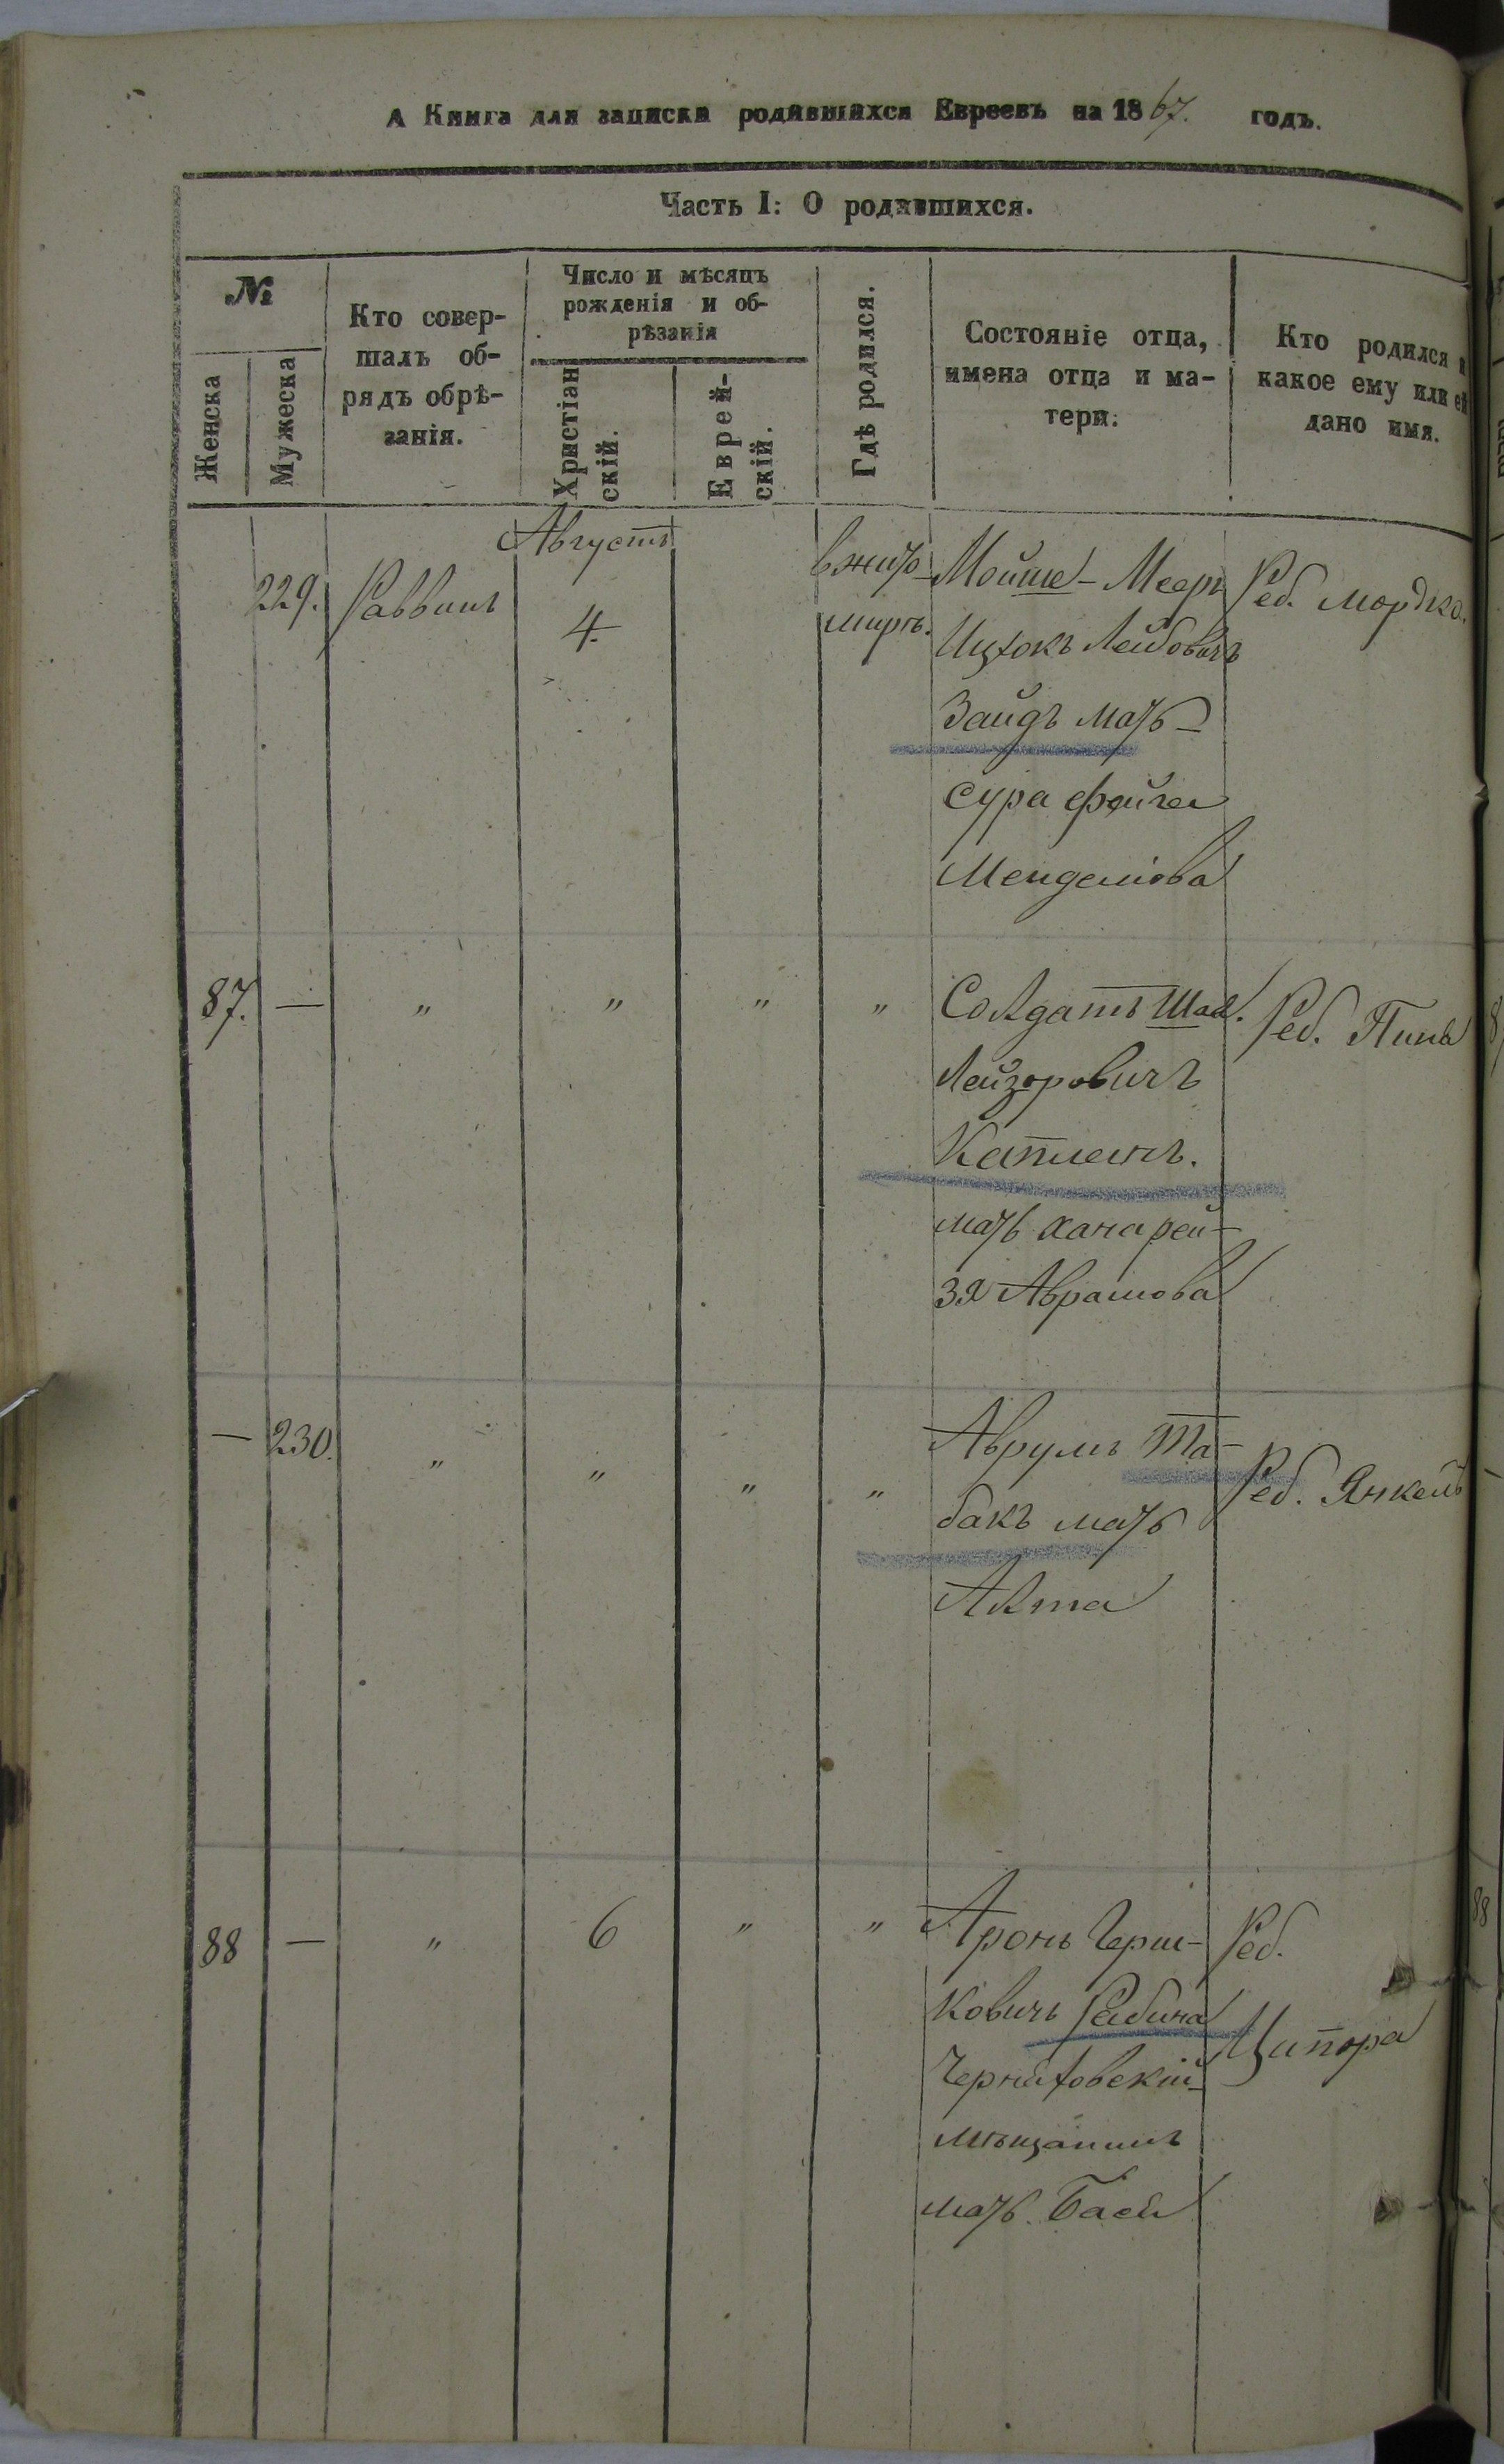 А Книга для записки родившихся Евреевъ на 1867. годъ.
Часть I: О родившихся.
№
Женска
Мужеска
Кто совер-
шалъ об-
рядъ обрѣ-
занія.
Число и мѣсяцъ
рожденія и об-
рѣзанія
Христіан
скій.
Еврей-
скій.
Гдѣ родился.
Состояніе отца,
имена отца и ма-
тери.
Кто родился и
какое ему или ей
дано имя.
Августъ
229. Раввинъ 4.
в жито-
мирѣ.
Мойше-Мееръ
Ицхокъ Лейбовичъ
Зайдъ мать-
Сура Фейга
Менделіова
Реб. Мордко.
87. — " " " "
Солдатъ Шая.
Лейзоровичъ
Капланъ.
мать Хана рей-
зя Аврамова
Реб. Пиня
— 230. " " " "
Аврумъ Та-
бакъ мать
Алта
Реб. Янкель
88 — " 6 " "
Аронъ Герш-
ковичъ Рабина
Черняховскій
мѣщанинъ
мать Бася
Реб.
Ципора
88